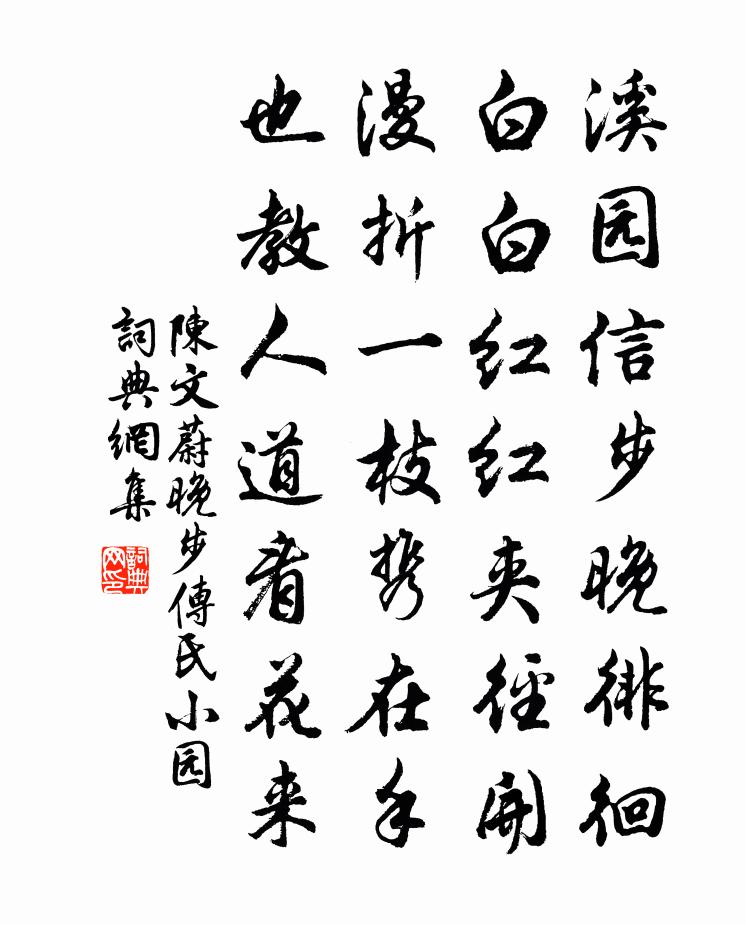 溪园信步晚徘徊
白白红红夹径開
漫折一枝携在手
也教人道看花来
陳文蔚晚步傅氏小园
詞典網集
詞典网印